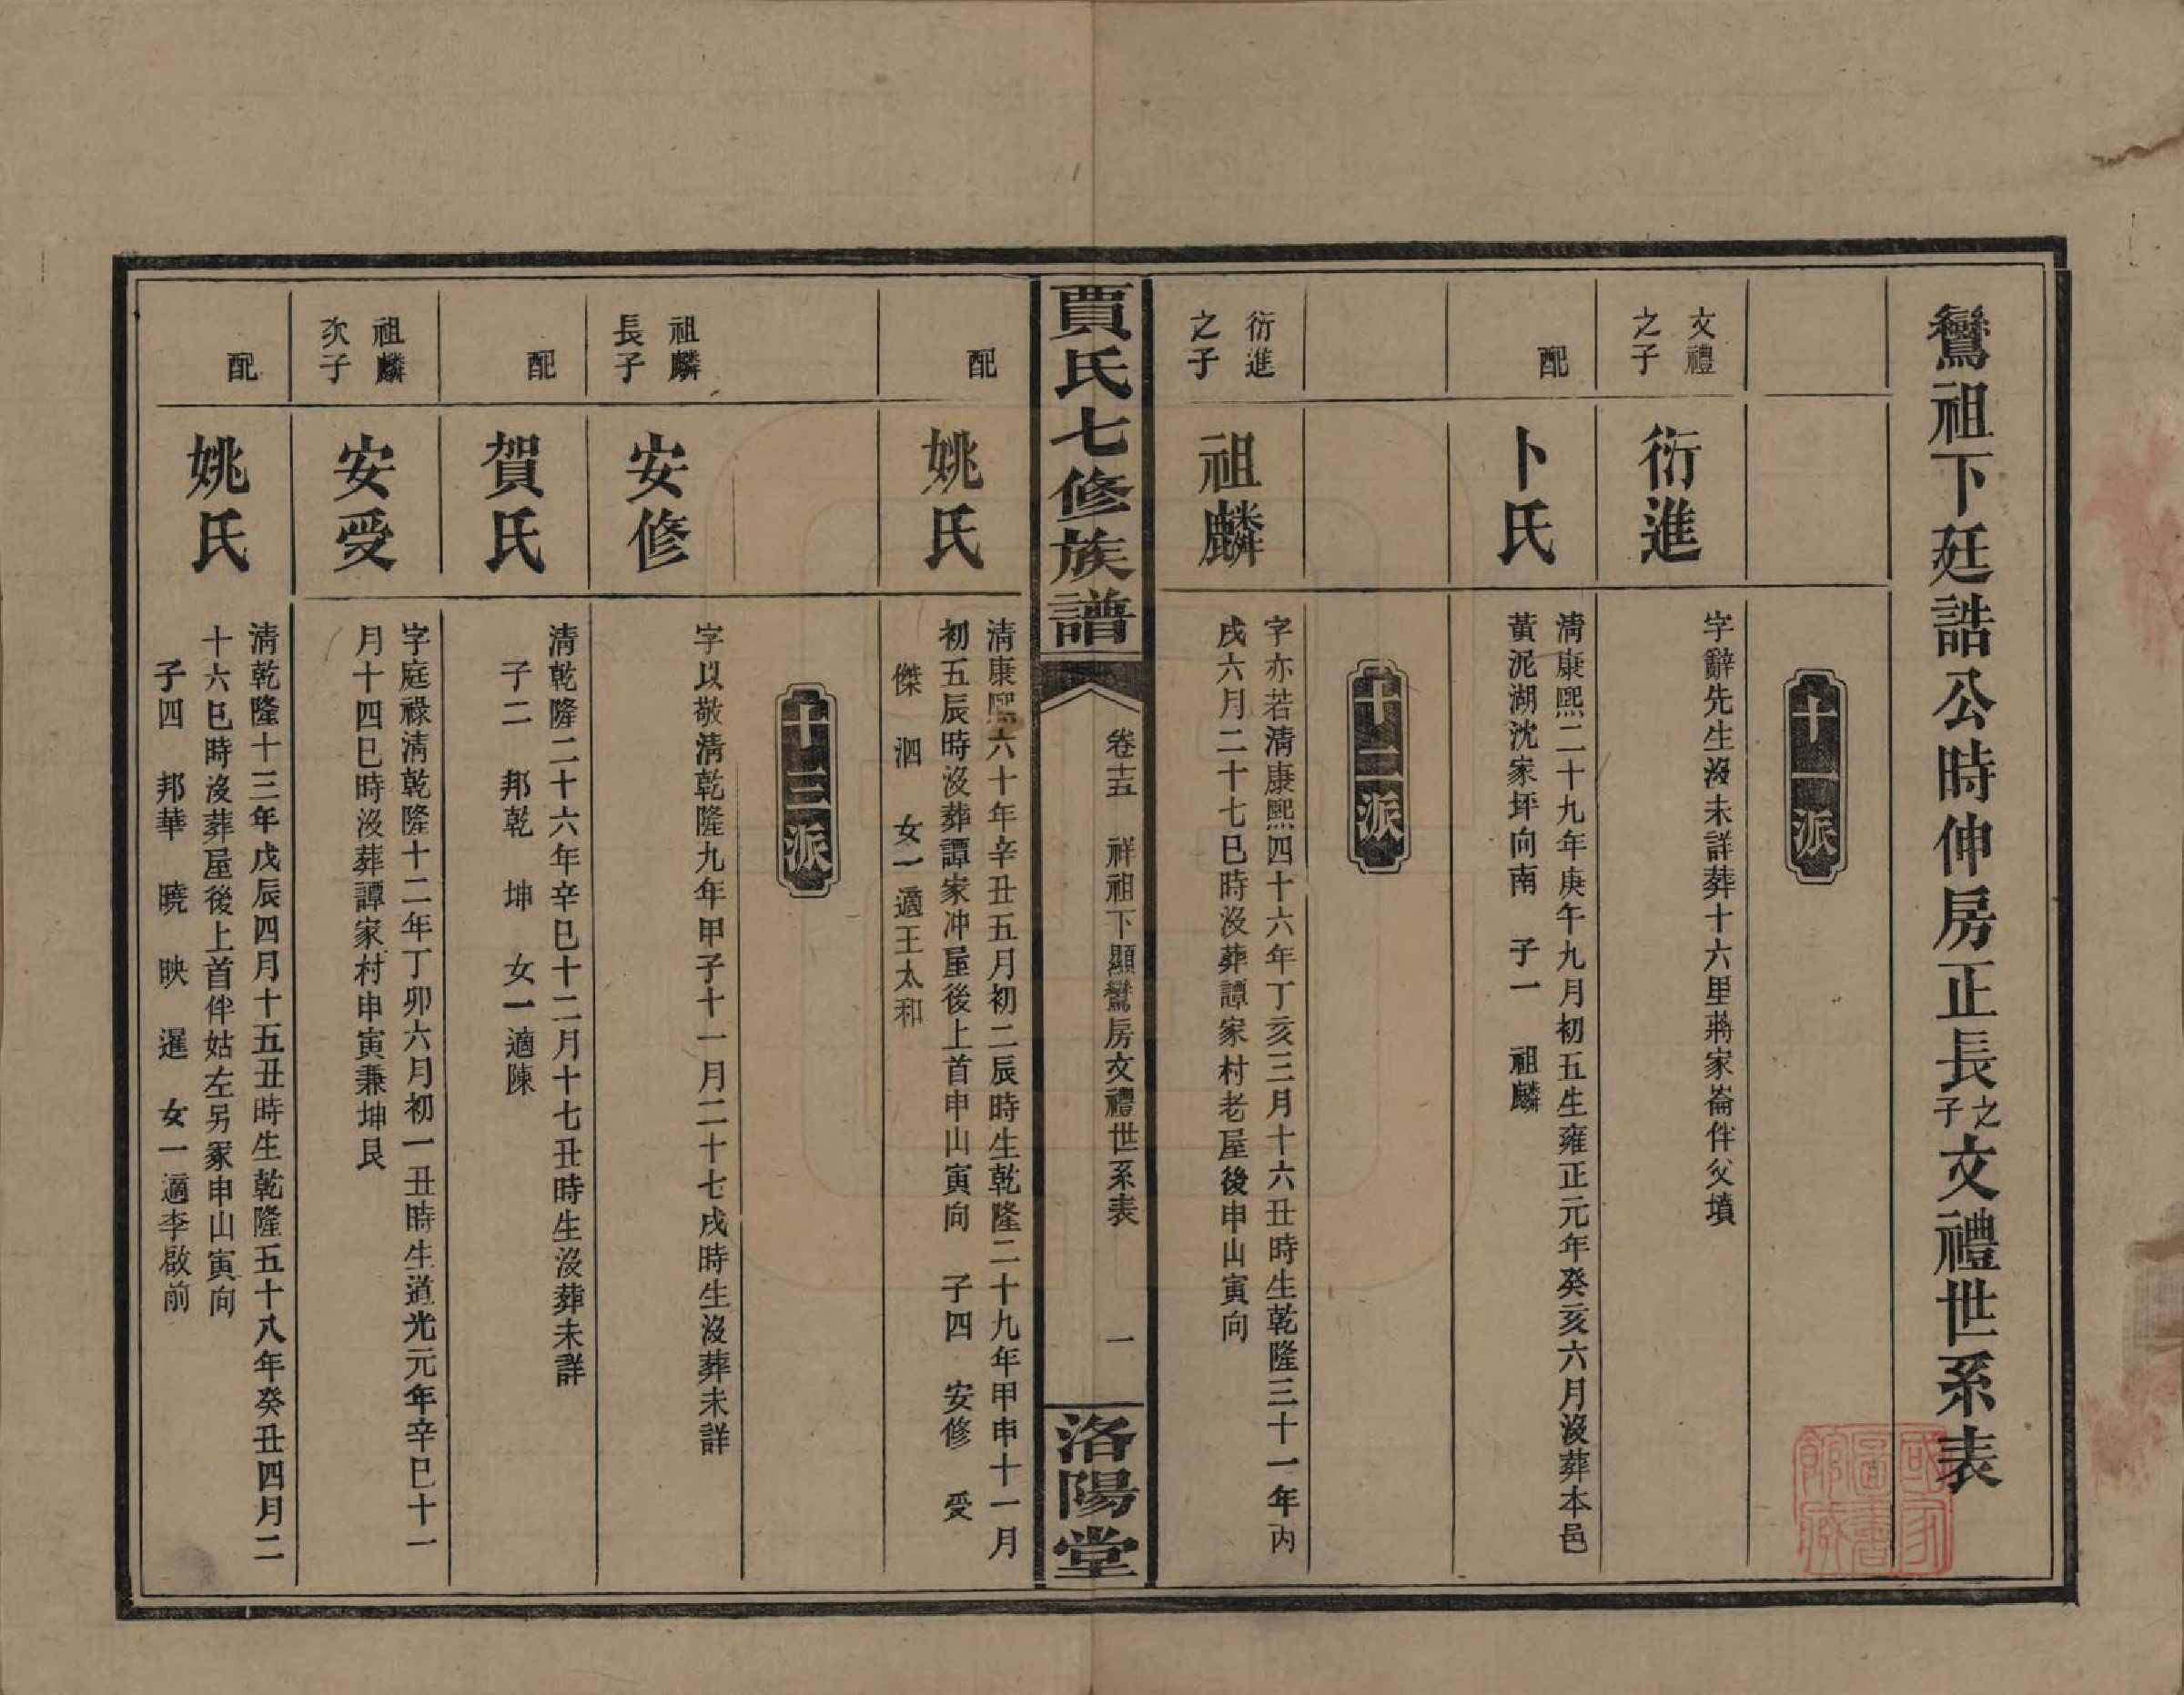 鸞祖下廷誥公時伸房正長之子文禮世系表
十一派
文禮之子
衍進
字辭先生沒未詳葬十六里蔣家崙伴父墳
配
卜氏
清康熙二十九年庚午九月初五生雍正元年癸亥六月沒葬本邑
黃泥湖沈家坪向南 子一 祖麟
十二派
衍進之子
祖麟
字亦若清康熙四十六年丁亥三月十六丑時生乾隆三十一年丙
戌六月二十七巳時沒葬譚家村老屋後申山寅向
賈氏七修族譜
卷十五 祥祖下顯鸞房文禮世系表 一
洛陽堂
配
姚氏
清康熙六十年辛丑五月初二辰時生乾隆二十九年甲申十一月
初五辰時沒葬譚家冲屋後上首申山寅向 子四 安修 受
傑 泗 女一適王太和
十三派
祖麟長子
安修
字以敬清乾隆九年甲子十一月二十七戌時生沒葬未詳
配
賀氏
清乾隆二十六年辛巳十二月十七丑時生沒葬未詳
子二 邦乾 坤 女一適陳
祖麟次子
安受
字庭祿清乾隆十二年丁卯六月初一丑時生道光元年辛巳十一
月十四巳時沒葬譚家村申寅兼坤艮
配
姚氏
清乾隆十三年戊辰四月十五丑時生乾隆五十八年癸丑四月二
十六巳時沒葬屋後上首伴姑左另冢申山寅向
子四 邦華 曉 映 暹 女一適李啟前
國家圖書館藏